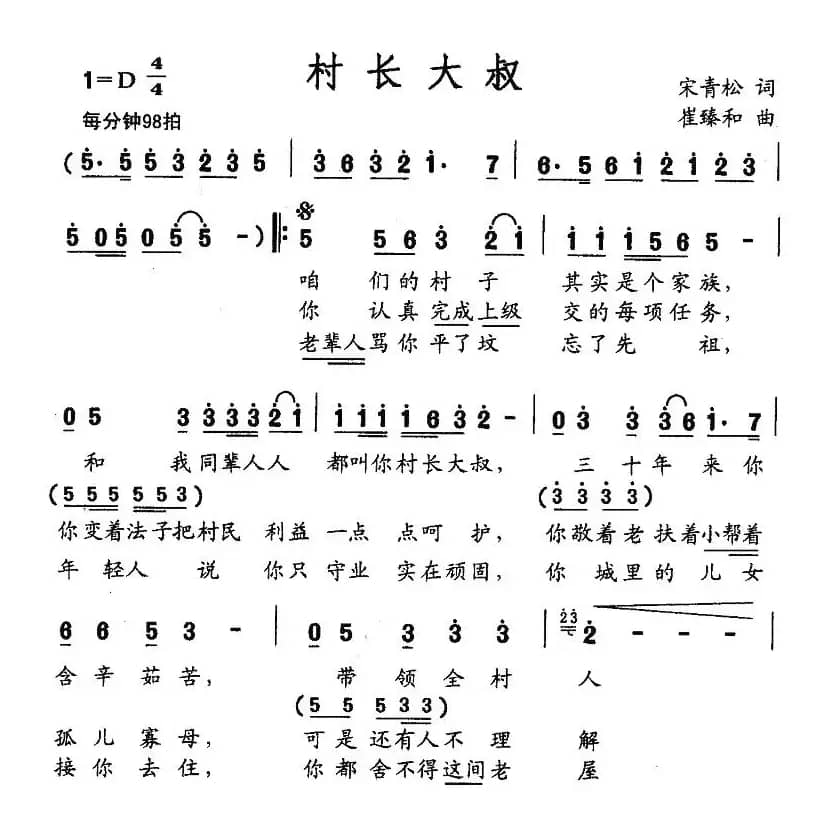 村长大叔
1=D 4/4
宋青松 词
每分钟98拍
崔臻和 曲
(5· 5 5 3 2 3 5 | 3 6 3 2 1· 7 | 6· 5 6 1 2 1 2 3 |
5 0 5 0 5 5 -) |: 5 5 6 3 2 1 | 1 1 1 5 6 5 - |
咱 们的村 子 其实是个家族,
你 认真完成上级 交的每项任务,
老辈人骂你平了坟 忘了先 祖,
0 5 3 3 3 3 2 1 | 1 1 1 1 6 3 2 - | 0 3 3 3 6 1· 7 |
和 我同辈人人 都叫你村长大叔, 三十年 来你
(5 5 5 5 5 3) (3 3 3 3)
你变着法子把村民 利益一点 点呵护, 你敬着老扶着小帮着
年轻人 说 你只守业 实在顽固, 你 城里的儿女
6 6 5 3 - | 0 5 3 3 3 | 2 3 2 - - |
含辛茹苦, 带领全村 人
(5 5 5 3 3)
孤儿寡母, 可是还有人不理 解
接你去住, 你都舍不得这间老 屋